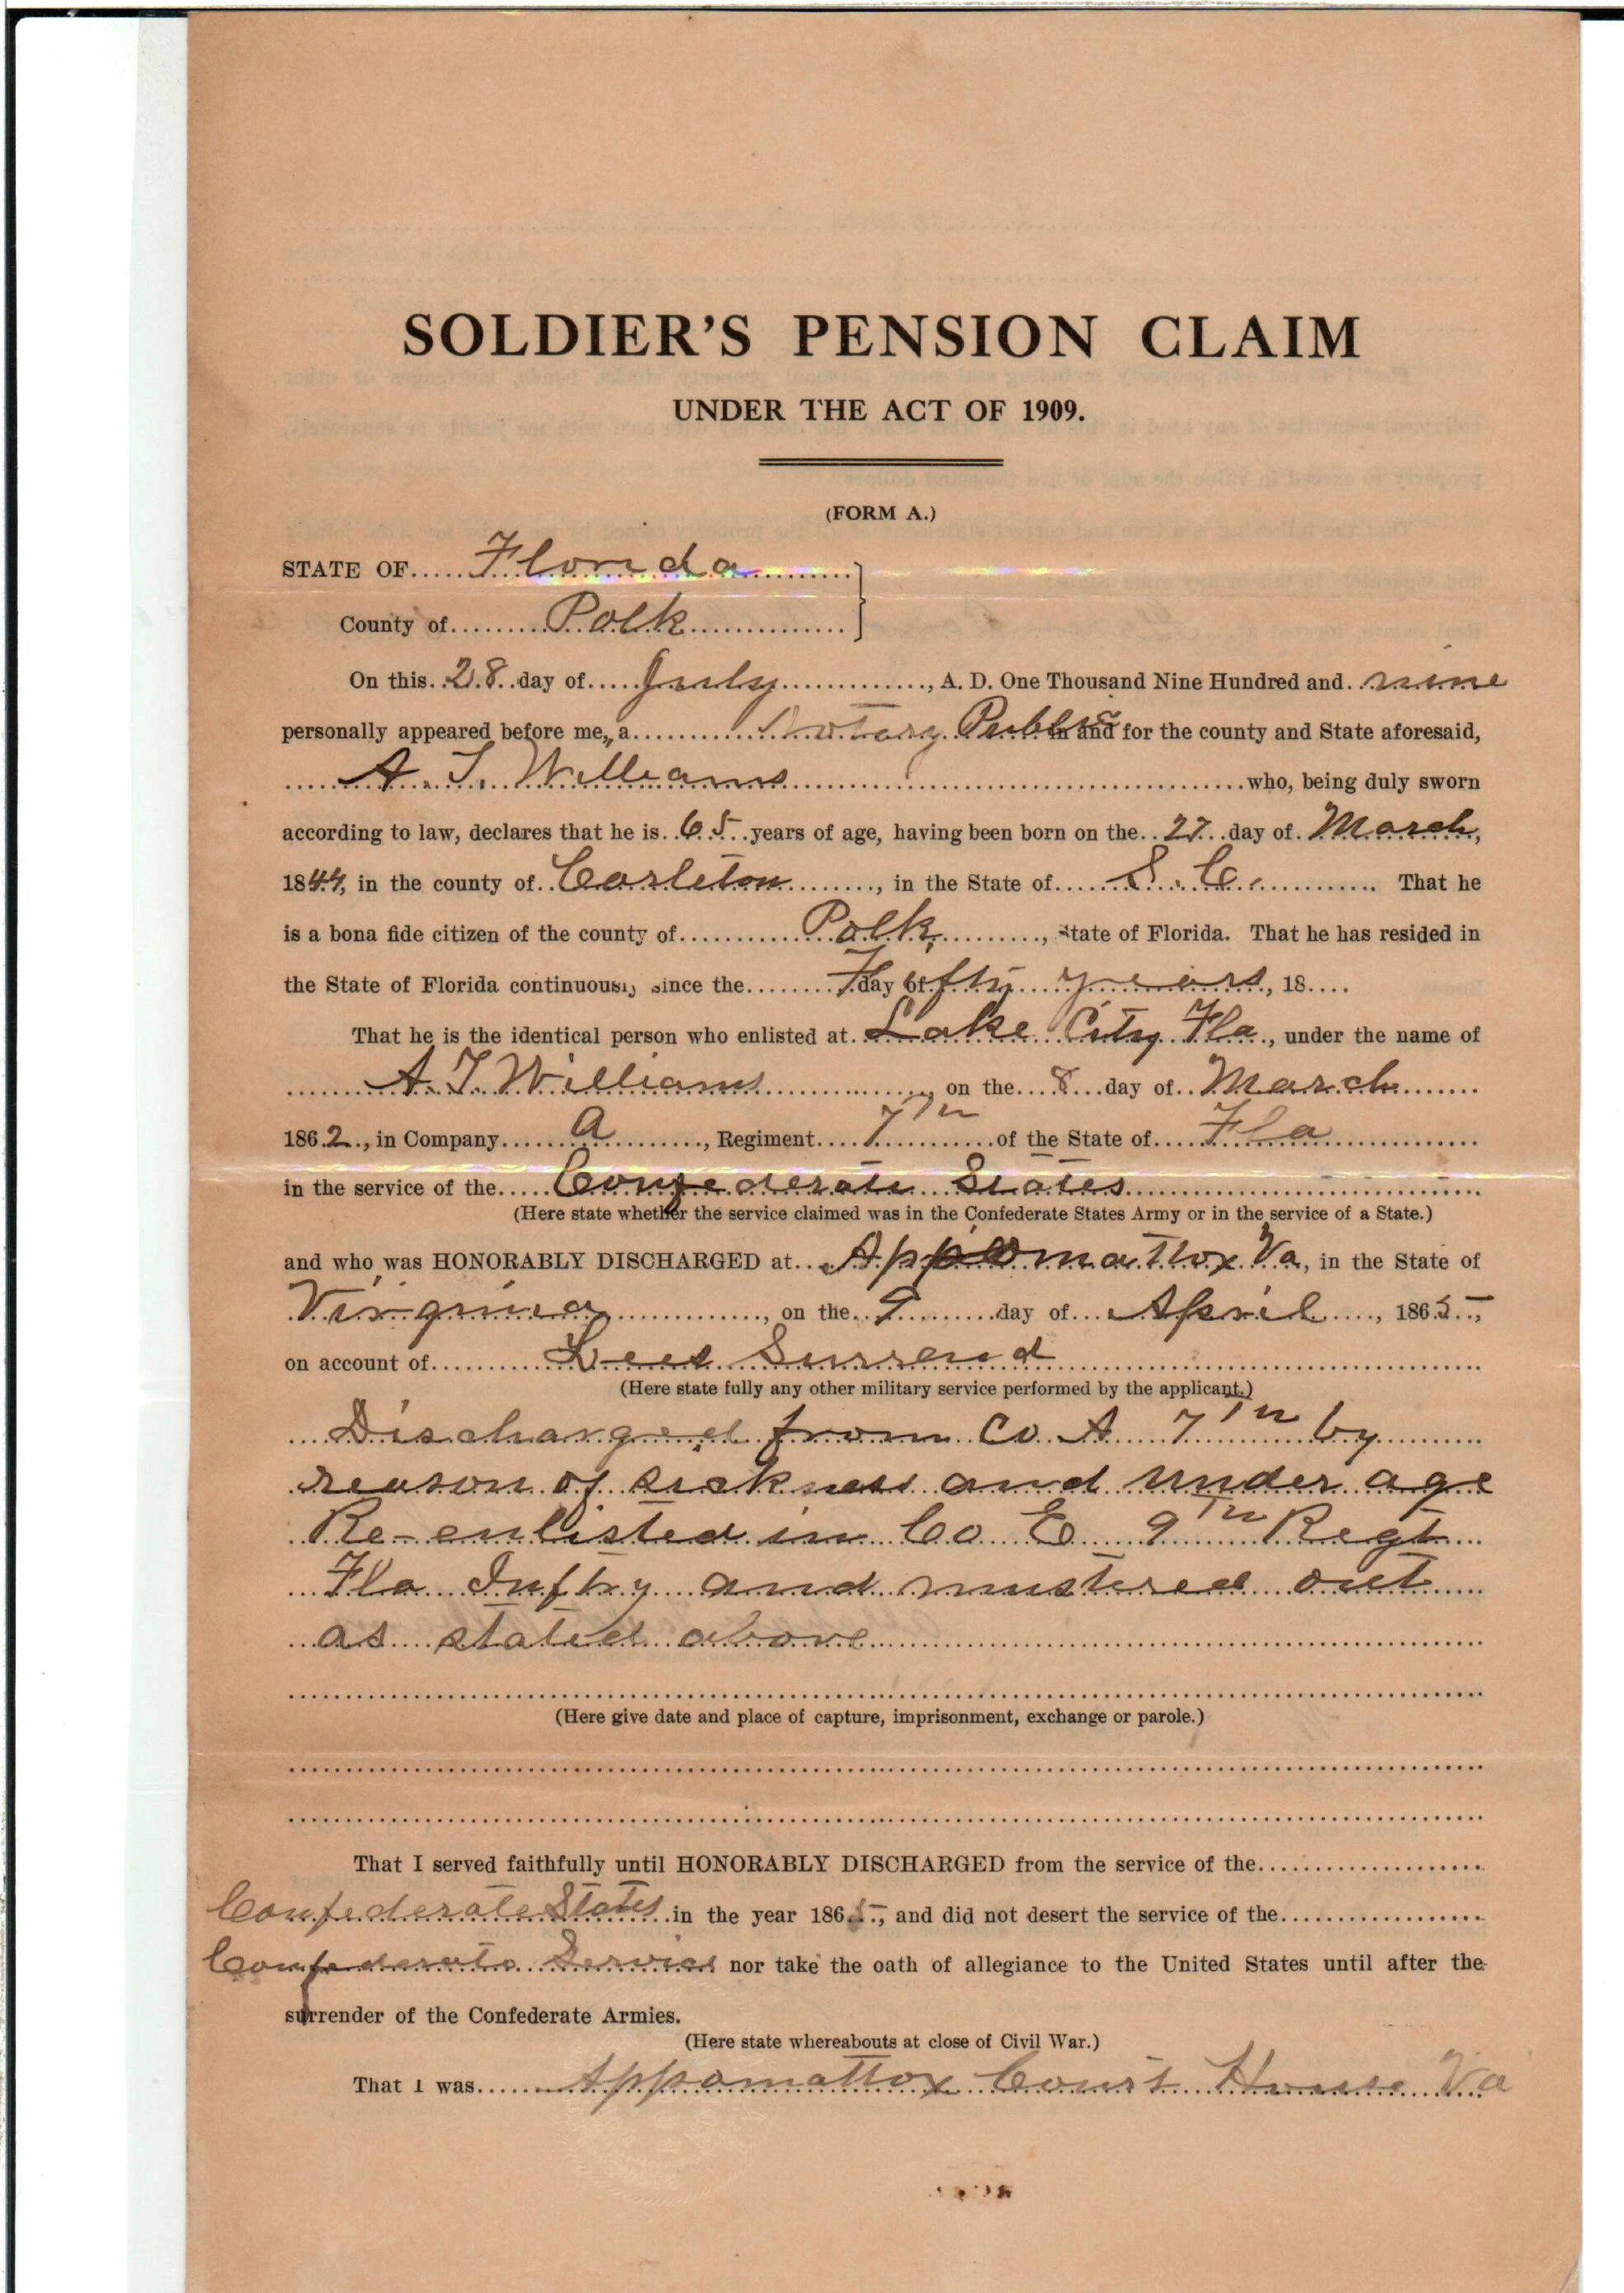 SOLDIER'S PENSION CLAIM
UNDER THE ACT OF 1909.
(FORM A.)
STATE OF Florida
County of Polk
On this 28 day of July, A. D. One Thousand Nine Hundred and nine
personally appeared before me, a Notary Public in and for the county and State aforesaid,
A. T. Williams who, being duly sworn
according to law, declares that he is 65 years of age, having been born on the 27 day of March,
1844, in the county of Carleton, in the State of S. C. That he
is a bona fide citizen of the county of Polk, State of Florida. That he has resided in
the State of Florida continuously since the day of years, 18
That he is the identical person who enlisted at Lake City Fla, under the name of
A. T. Williams, on the 8 day of March
1862, in Company A, Regiment 7th of the State of Fla
in the service of the Confederate States
(Here state whether the service claimed was in the Confederate States Army or in the service of a State.)
and who was HONORABLY DISCHARGED at Appomattox Va, in the State of
Virginia, on the 9 day of April, 1865,
on account of Lees Surrend
(Here state fully any other military service performed by the applicant.)
Discharged from Co A 7th by
reason of sickness and under age
Re-enlisted in Co E 9th Regt
Fla Inftry and mustered out
as stated above
(Here give date and place of capture, imprisonment, exchange or parole.)
That I served faithfully until HONORABLY DISCHARGED from the service of the
Confederate States in the year 1865, and did not desert the service of the
Confederate Service nor take the oath of allegiance to the United States until after the
surrender of the Confederate Armies.
(Here state whereabouts at close of Civil War.)
That I was Appomattox Court House Va